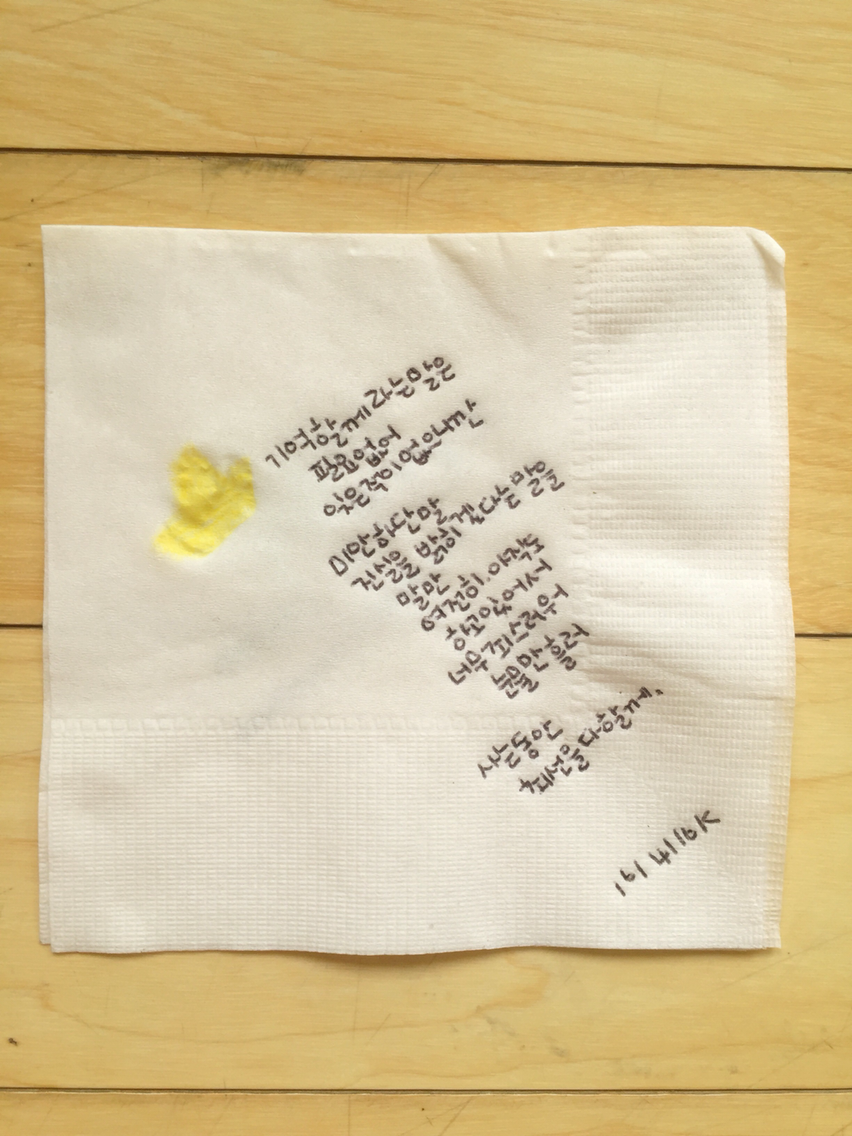 기억할께라는말을
필요없어
잊은적이없으니깐
미안하단말
진실을 밝히겠다는말을
말만
여전히.아직
하고있어서
너무
눈물만흘러
사는동안
최선을다할께.
16/4/16 K